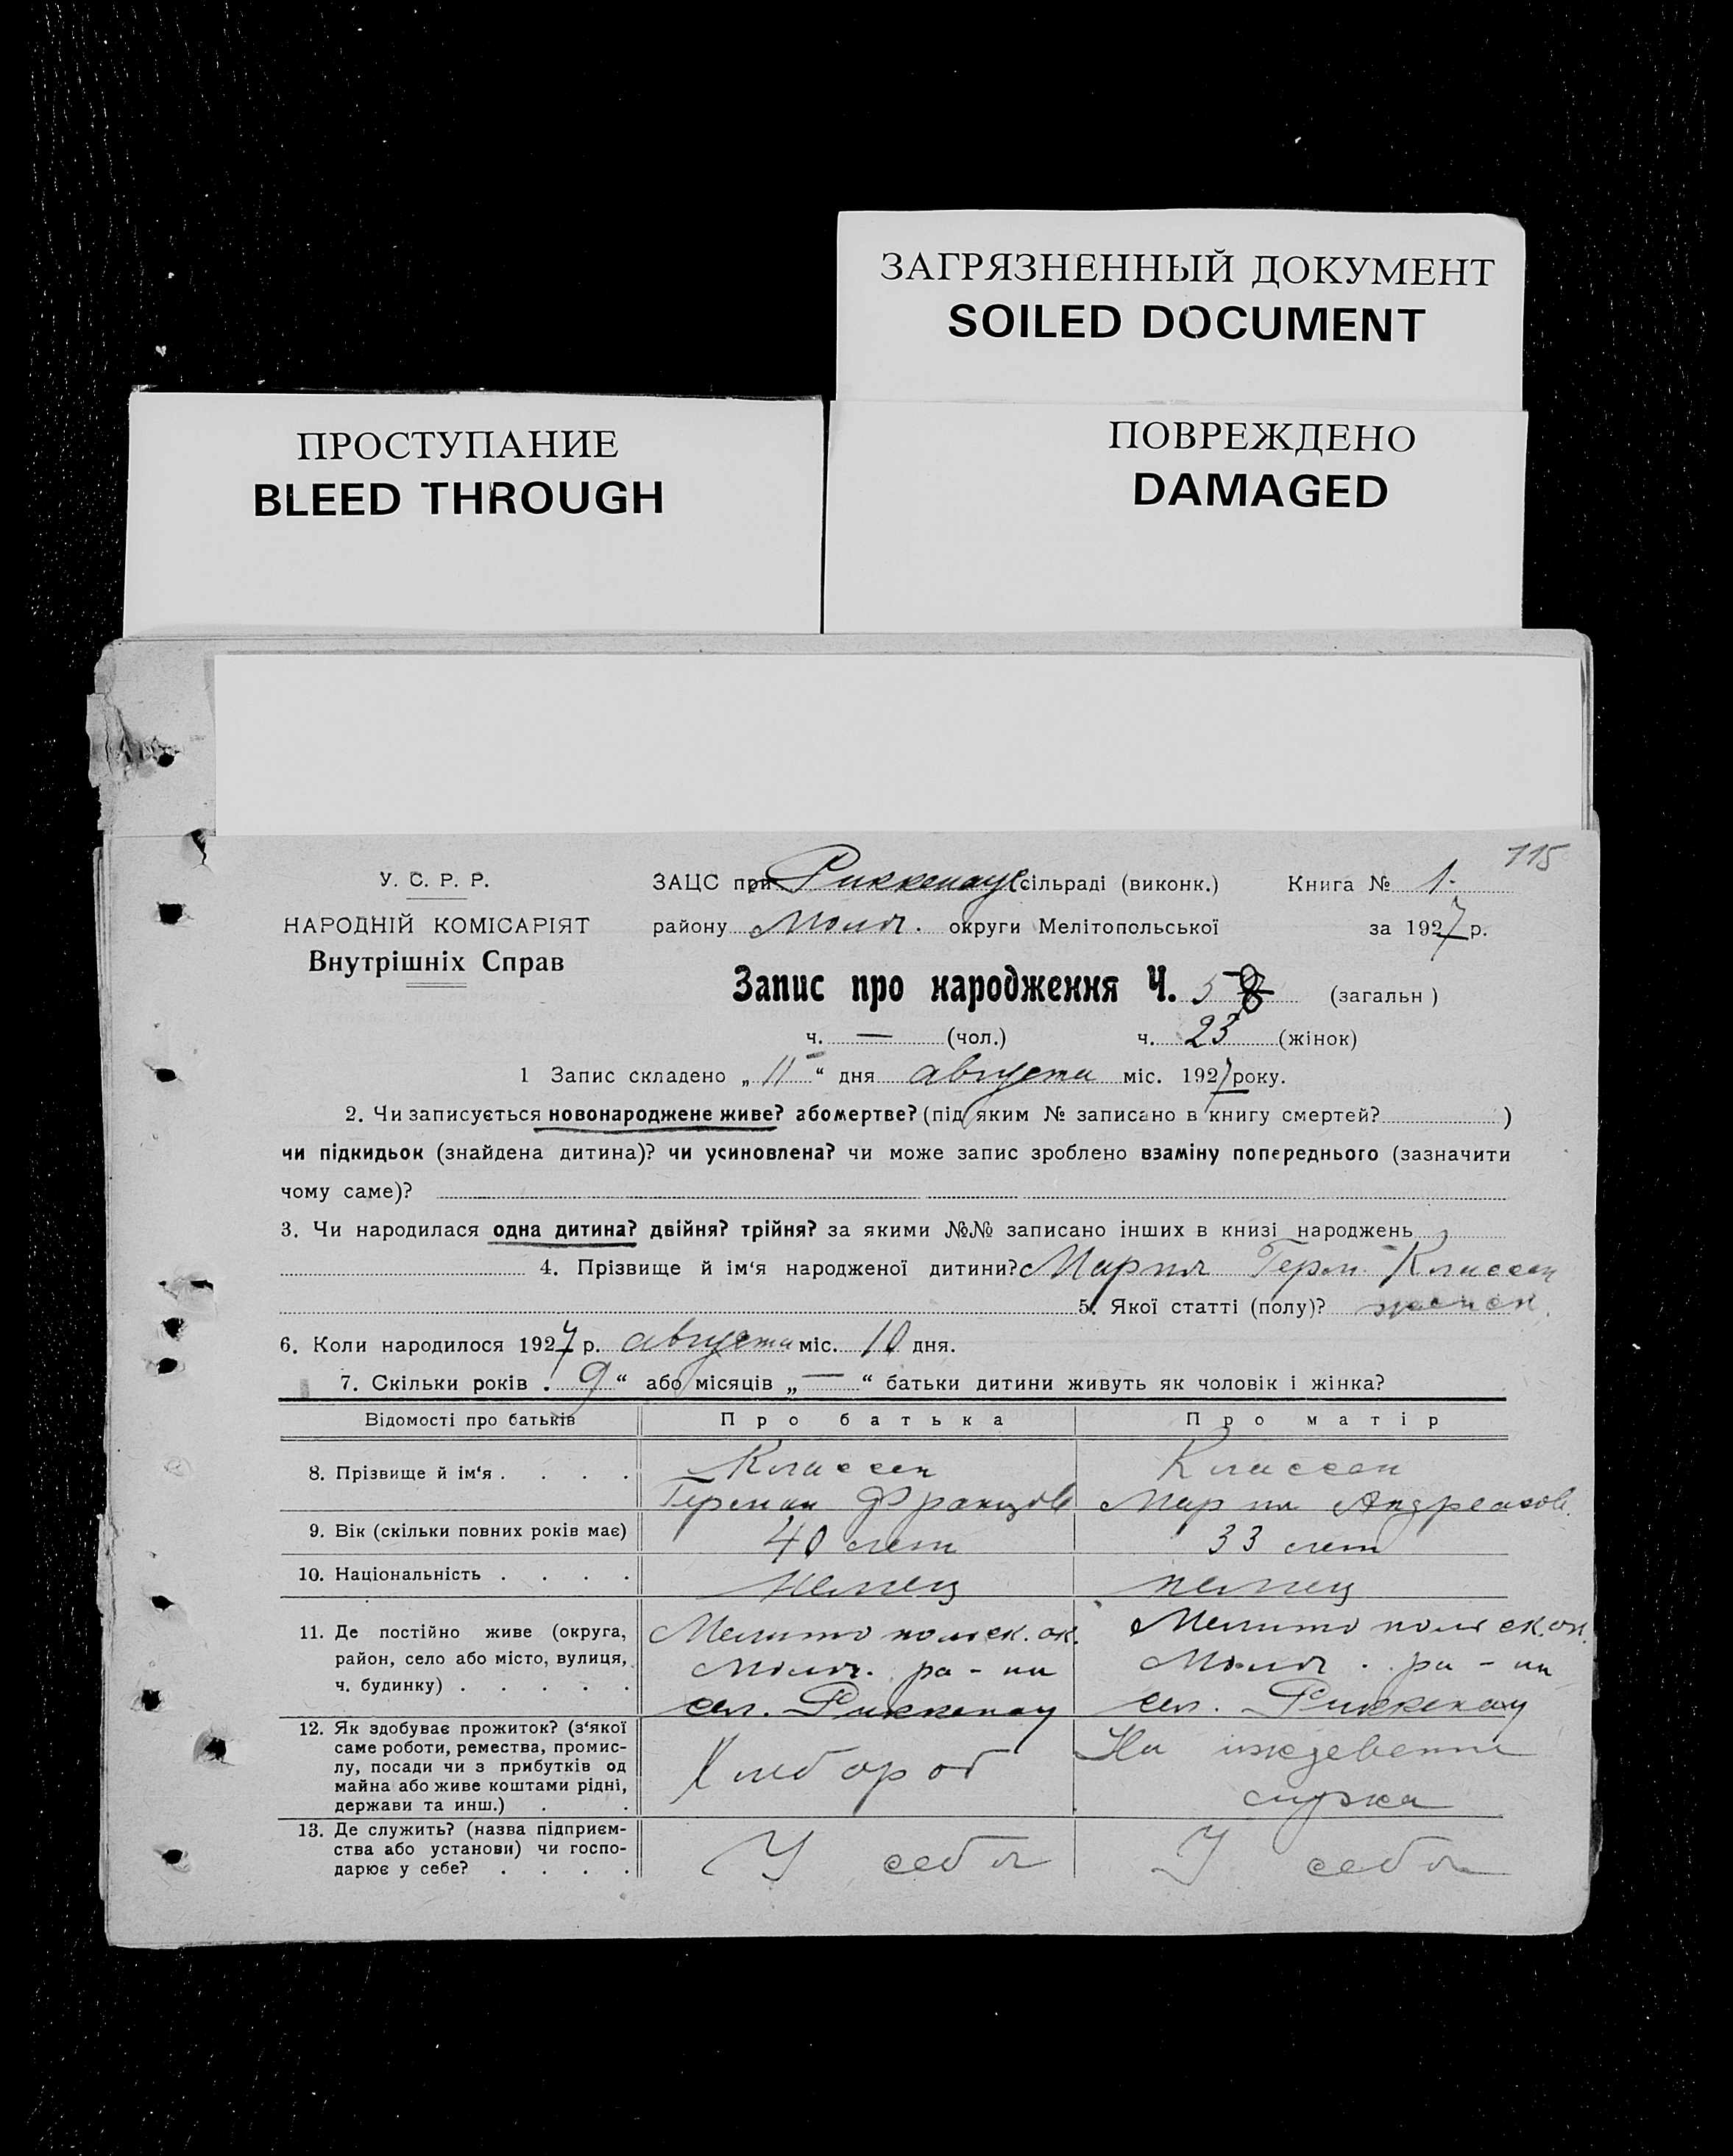 ЗАГРЯЗНЕННЫЙ ДОКУМЕНТ
SOILED DOCUMENT
ПРОСТУПАНИЕ
BLEED THROUGH
ПОВРЕЖДЕНО
DAMAGED
115
У. С. Р. Р.
НАРОДНІЙ КОМІСАРІЯТ
Внутрішніх Справ
ЗАЦС при Риккенауск сільраді (виконк.) Книга № 1.
району Молоч. округи Мелітопольської за 1927 р.
Запис про народження Ч. 58 (загальн)
ч. — (чол.) ч. 23 (жінок)
1 Запис складено „11“ дня августа міс. 1927 року.
2. Чи записується новонароджене живе? або мертве? (під яким № записано в книгу смертей? )
чи підкидьок (знайдена дитина)? чи усиновлена? чи може запис зроблено взаміну попереднього (зазначити
чому саме)?
3. Чи народилася одна дитина? двійня? трійня? за якими №№ записано інших в книзі народжень
4. Прізвище й ім‘я народженої дитини? Мария Герм. Классен
5. Якої статті (полу)? женск.
6. Коли народилося 1927 р. августа міс. 10 дня.
7. Скільки років „9“ або місяців „—“ батьки дитини живуть як чоловік і жінка?
Відомості про батьків Про батька Про матір
8. Прізвище й ім‘я . . . . Классен Классен
Герман Францов Мария Андреасов.
9. Вік (скільки повних років має) 40 лет 33 лет
10. Національність . . . . немец немец
11. Де постійно живе (округа, район, село або місто, вулиця, ч. будинку) . . . . .
Мелитопольск. ок. Мелитопольск. ок.
Молоч. ра-на Молоч. ра-на
сел. Риккенау сел. Риккенау
12. Як здобуває прожиток? (з‘якої
саме роботи, ремества, промис-
лу, посади чи з прибутків од
майна або живе коштами рідні,
держави та инш.) . .
Хлебороб На иждевении
мужа
13. Де служить? (назва підприєм-
ства або установи) чи госпо-
дарює у себе? . . . .
У себя У себя